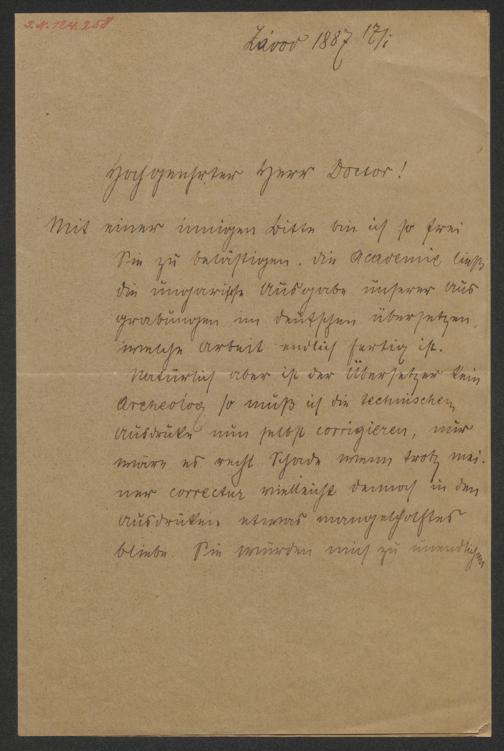 I.N. 124.258
Závod 1887 17/i
Hochgeehrter Herr Doctor!
Mit einer innigen Bitte bin ich so frei
Sie zu belästigen. Die Academie ließ
die ungarische Ausgabe unserer Aus
grabungen im deutschen übersetzen,
welche Arbeit endlich fertig ist.
Natürlich aber ist der Übersetzer kein
Archeolog so muß ich die technischen
Ausdrüke nun selbst corrigieren, nur
wäre es recht Schade wenn trotz mei-
ner correctur vielleicht dennoch in den
Ausdrüken etwas mangelhaftes
bliebe. Sie würden mich zu unendlichem